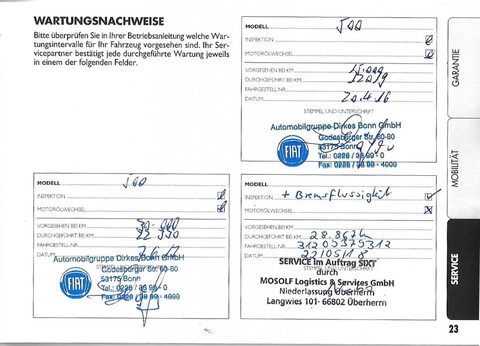 WARTUNGSNACHWEISE
Bitte überprüfen Sie in Ihrer Betriebsanleitung welche War-
tungsintervalle für Ihr Fahrzeug vorgesehen sind. Ihr Ser-
vicepartner bestätigt jede durchgeführte Wartung jeweils
in einem der folgenden Felder.
MODELL 500
INSPEKTION
MOTORÖLWECHSEL
VORGESEHEN BEI KM 15.000
DURCHGEFÜHRT BEI KM
FAHRGESTELL NR.
DATUM 20.4.16
STEMPEL UND UNTERSCHRIFT
Automobilgruppe Dirkes Bonn GmbH
Godesberger Str. 60-80
53175 Bonn
Tel.: 0228 / 38 99 - 0
Fax: 0228 / 38 99 - 4000
FIAT
MODELL 500
INSPEKTION
MOTORÖLWECHSEL
VORGESEHEN BEI KM 30.000
DURCHGEFÜHRT BEI KM
FAHRGESTELL NR.
DATUM
Automobilgruppe Dirkes Bonn GmbH
Godesberger Str. 60-80
53175 Bonn
Tel.: 0228 / 38 99 - 0
Fax: 0228 / 38 99 - 4000
FIAT
MODELL
INSPEKTION + Bremsflüssigkeit
MOTORÖLWECHSEL
VORGESEHEN BEI KM
DURCHGEFÜHRT BEI KM 28.867
FAHRGESTELL NR.
DATUM 22/05/18
STEMPEL UND UNTERSCHRIFT
SERVICE im Auftrag SIXT
durch
MOSOLF Logistics & Services GmbH
Niederlassung Überherrn
Langwies 101- 66802 Überherrn
GARANTIE
MOBILITÄT
SERVICE
23